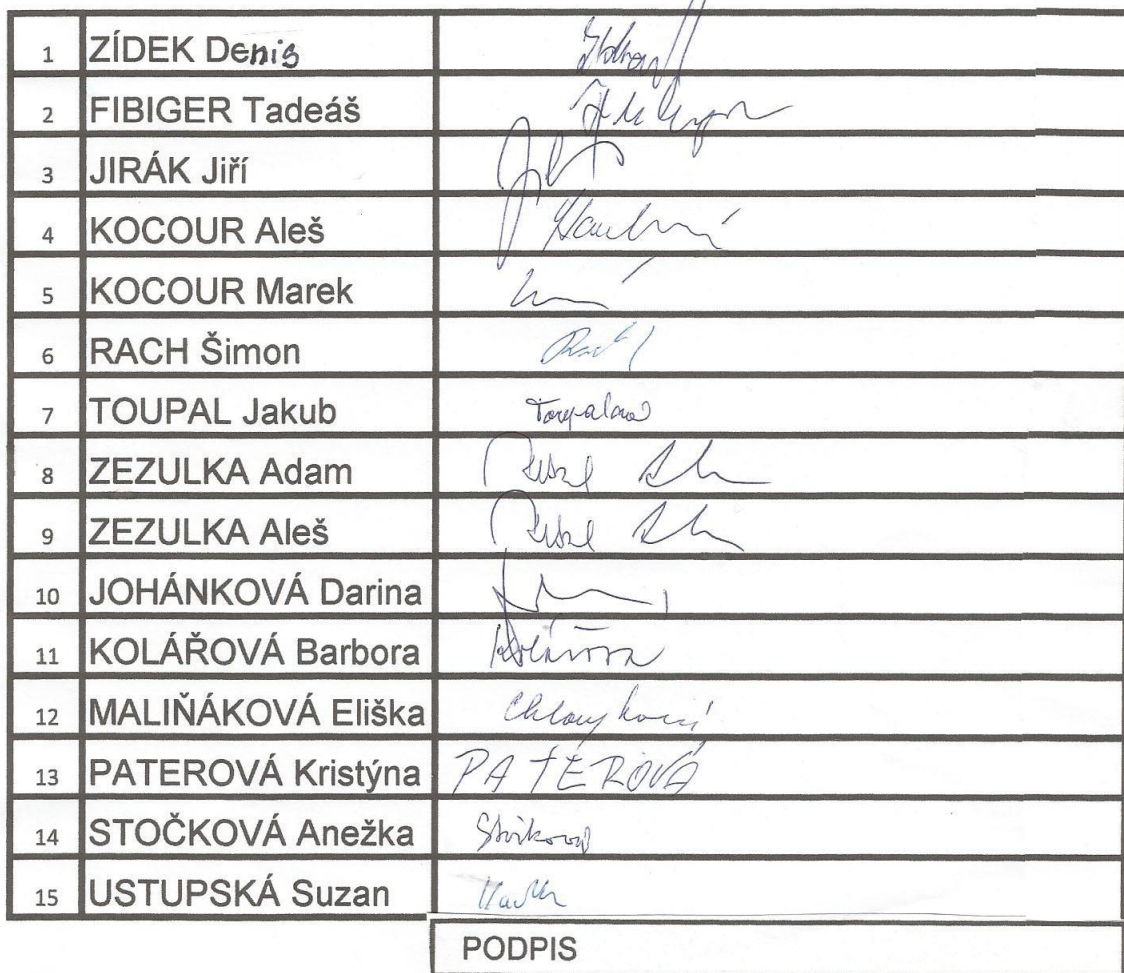 1 ZÍDEK Denis
2 FIBIGER Tadeáš
3 JIRÁK Jiří
4 KOCOUR Aleš
5 KOCOUR Marek
6 RACH Šimon
7 TOUPAL Jakub
8 ZEZULKA Adam
9 ZEZULKA Aleš
10 JOHÁNKOVÁ Darina
11 KOLÁŘOVÁ Barbora Kolářová
12 MALIŇÁKOVÁ Eliška
13 PATEROVÁ Kristýna PATEROVÁ
14 STOČKOVÁ Anežka
15 USTUPSKÁ Suzan
PODPIS